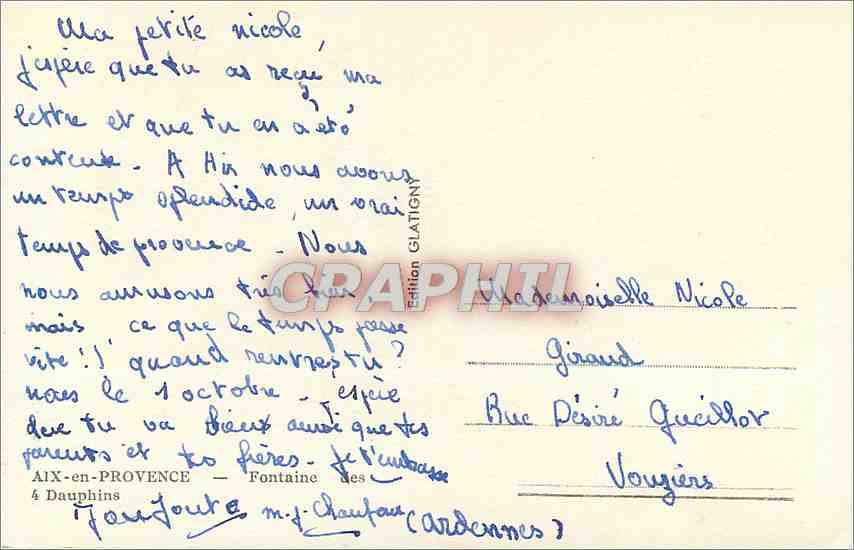 Ma petite nicole,
j'espère que tu as reçu ma
lettre et que tu en a été
contente. A Aix nous avons
un temps splendide, un vrai
temps de provence. Nous
nous amusons très bien,
mais ce que le temps passe
vite!! quand rentres tu?
nous le 1 octobre. j'espère
que tu va bien ainsi que tes
parents et tes frères. Je t'embrasse
AIX-en-PROVENCE — Fontaine des
4 Dauphins
m.j.
(Ardennes)
Edition GLATIGNY
CRAPHIL
Mademoiselle Nicole
Giraud
Rue Désiré Gueillot
Vouziers